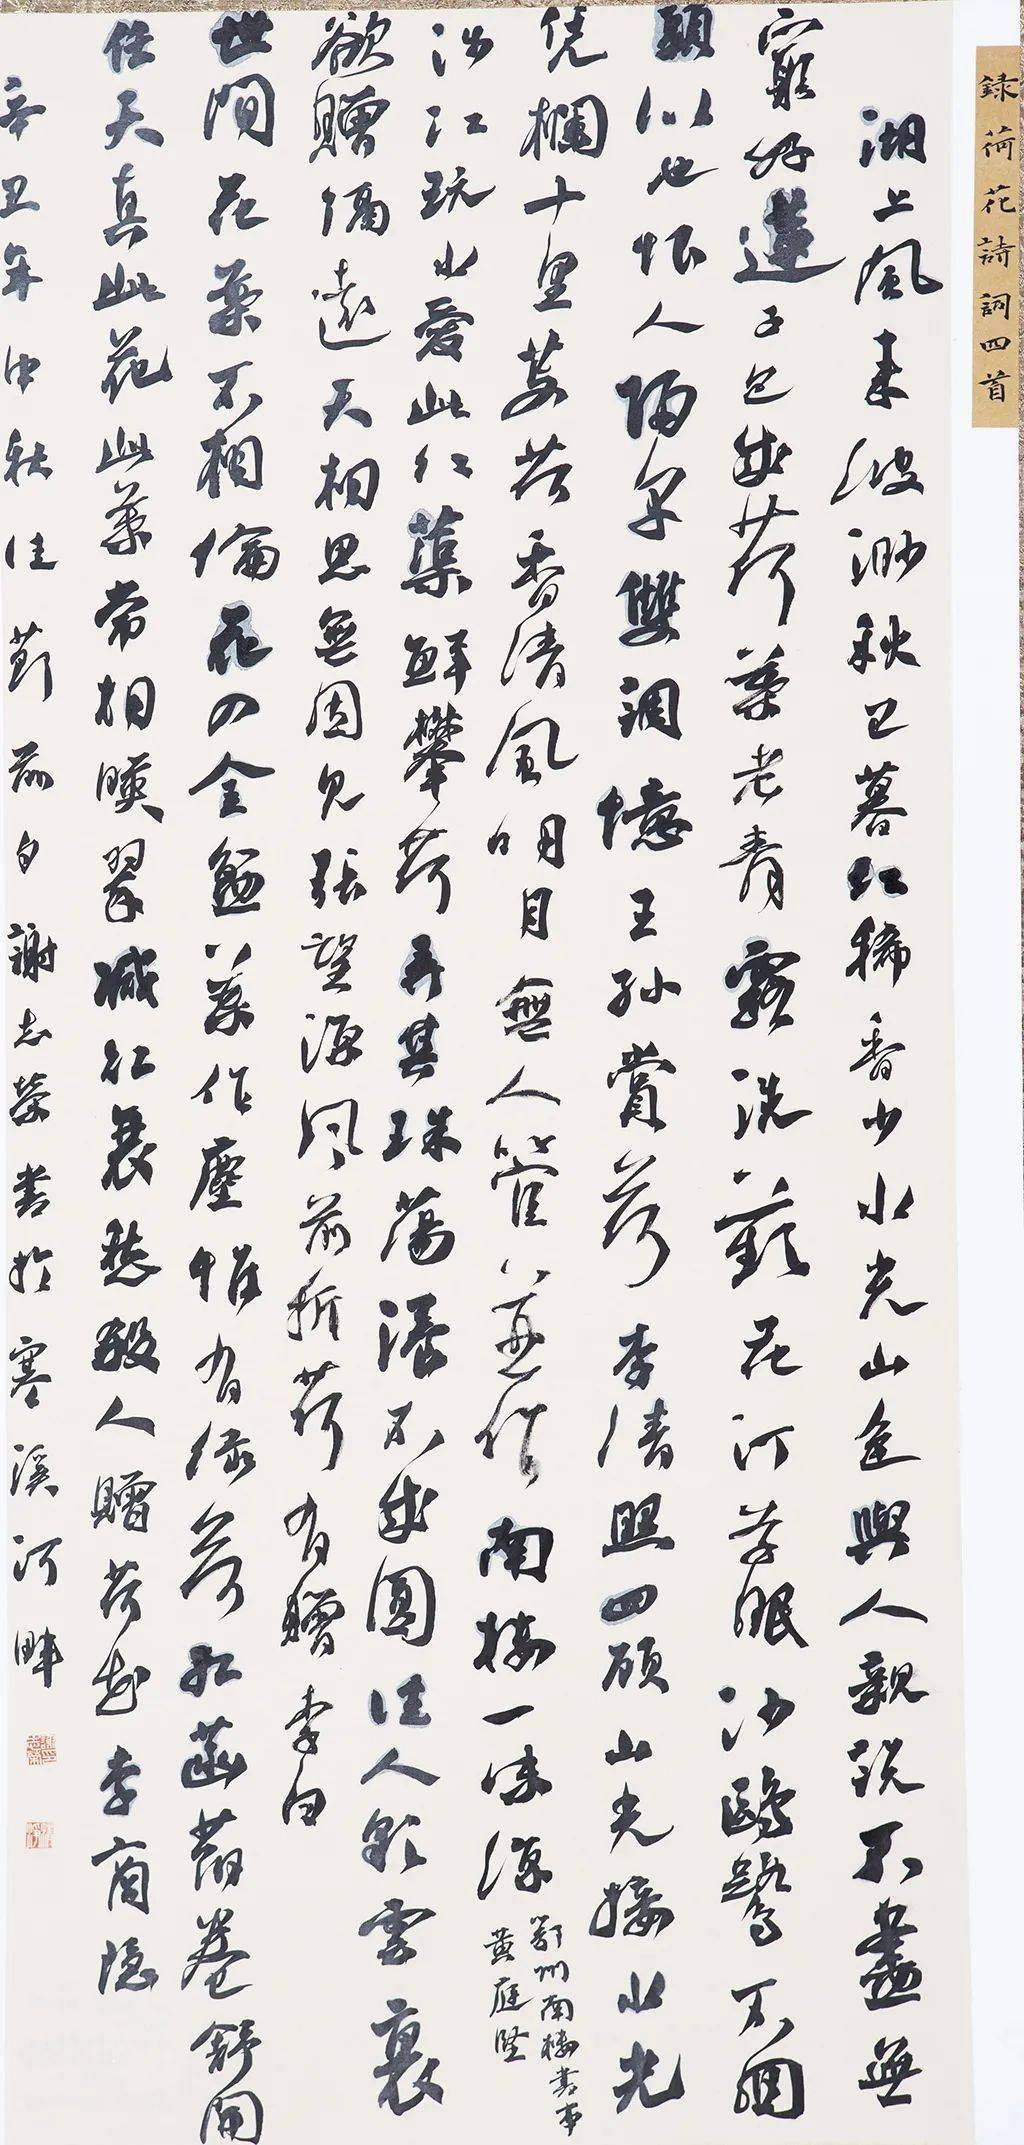 録荷花詩詞四首
湖上風来波渺秋已暮红稀香少水光山色與人親説不盡無
窮好蓮子已成荷葉老青露洗蘋花汀草眠沙鷗鷺不囬
頭似也恨人歸早雙調憶王孙賞荷李清照四顾山光接水光
凭欄十里芰荷香清風明月無人管並作南楼一味涼鄂州南楼書事
黄庭坚
涉江玩水爱此红蕖鮮攀荷弄其珠蕩漾不成圓佳人彩雲裏
欲贈隔遠天相思無因見張望涼风前折荷有贈李白
世间花葉不相倫花入金盆葉作塵惟有绿荷红菡萏卷舒開
任天真此花此葉常相映翠减红衰愁殺人贈荷花李商隐
辛丑年中秋佳節前夕謝志荣書於寒溪河畔